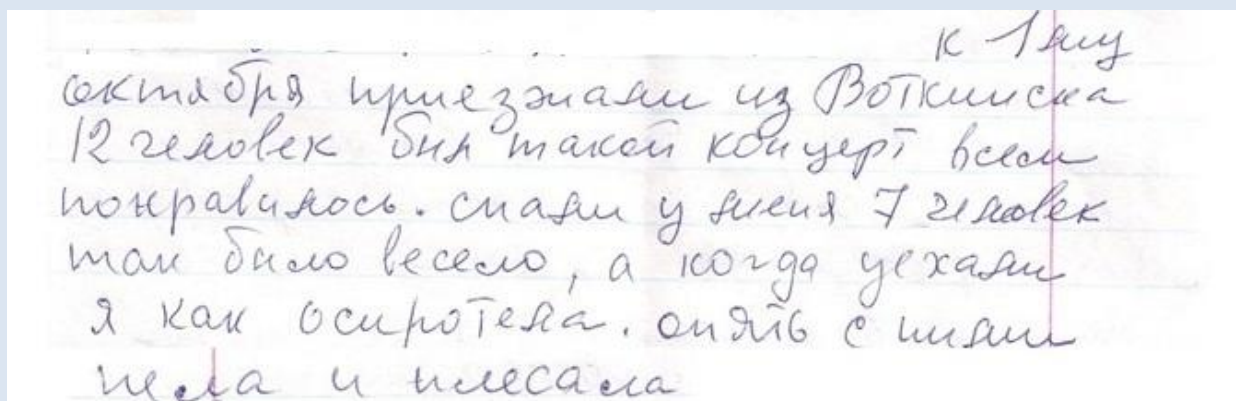 к 1 му
октября приезжали из Воткинска
12 человек был такой концерт всем
понравилось. спали у меня 7 человек
так было весело, а когда уехали
я как осиротела. опять с ними
пела и плесала